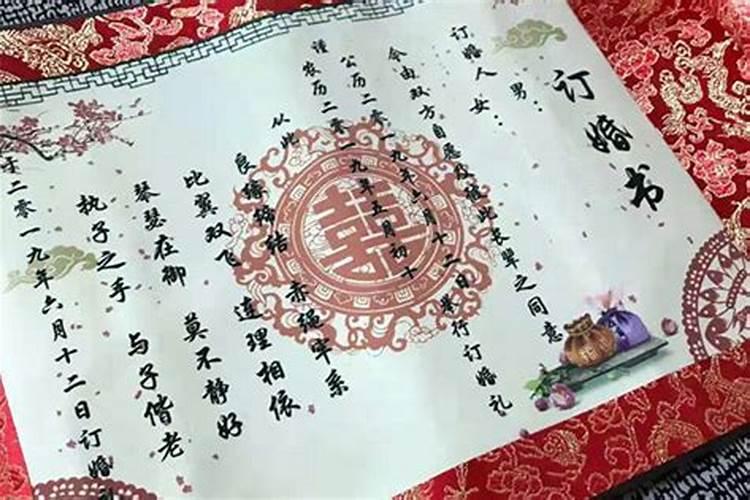 订婚书
订婚人 男：
女：
今由双方自愿及征此长辈之同意
公历二零一九年六月十二日举行订婚礼
谨农历二零一九年五月初十
从此
良缘缔结 赤绳牢系
比翼双飞 连理相依
琴瑟在御 莫不静好
执子之手 与子偕老
于二零一九年六月十二日订婚
囍